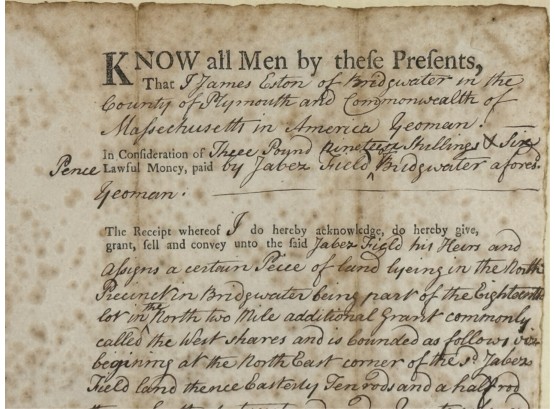 KNOW all Men by theſe Preſents,
That I James Eston of Bridgwater in the
County of Plymouth and Commonwealth of
Massechusetts in America Yeoman.
In Consideration of Three Pound Shillings & Six
Pence Lawful Money, paid by Jabez Field Bridgwater afores.d
Yeoman.
The Receipt whereof I do hereby acknowledge, do hereby give,
grant, sell and convey unto the said Jabez Field his Heirs and
assigns a certain Peice of land lyeing in the North
Precinct in Bridgwater being part of the Eighteenth
lot in the North two Mile additional Grant commonly
called the West shares and is bounded as follows viz
begining at the North East corner of the s.d Jabez
Field land thence Easterly Ten rods and a half rod